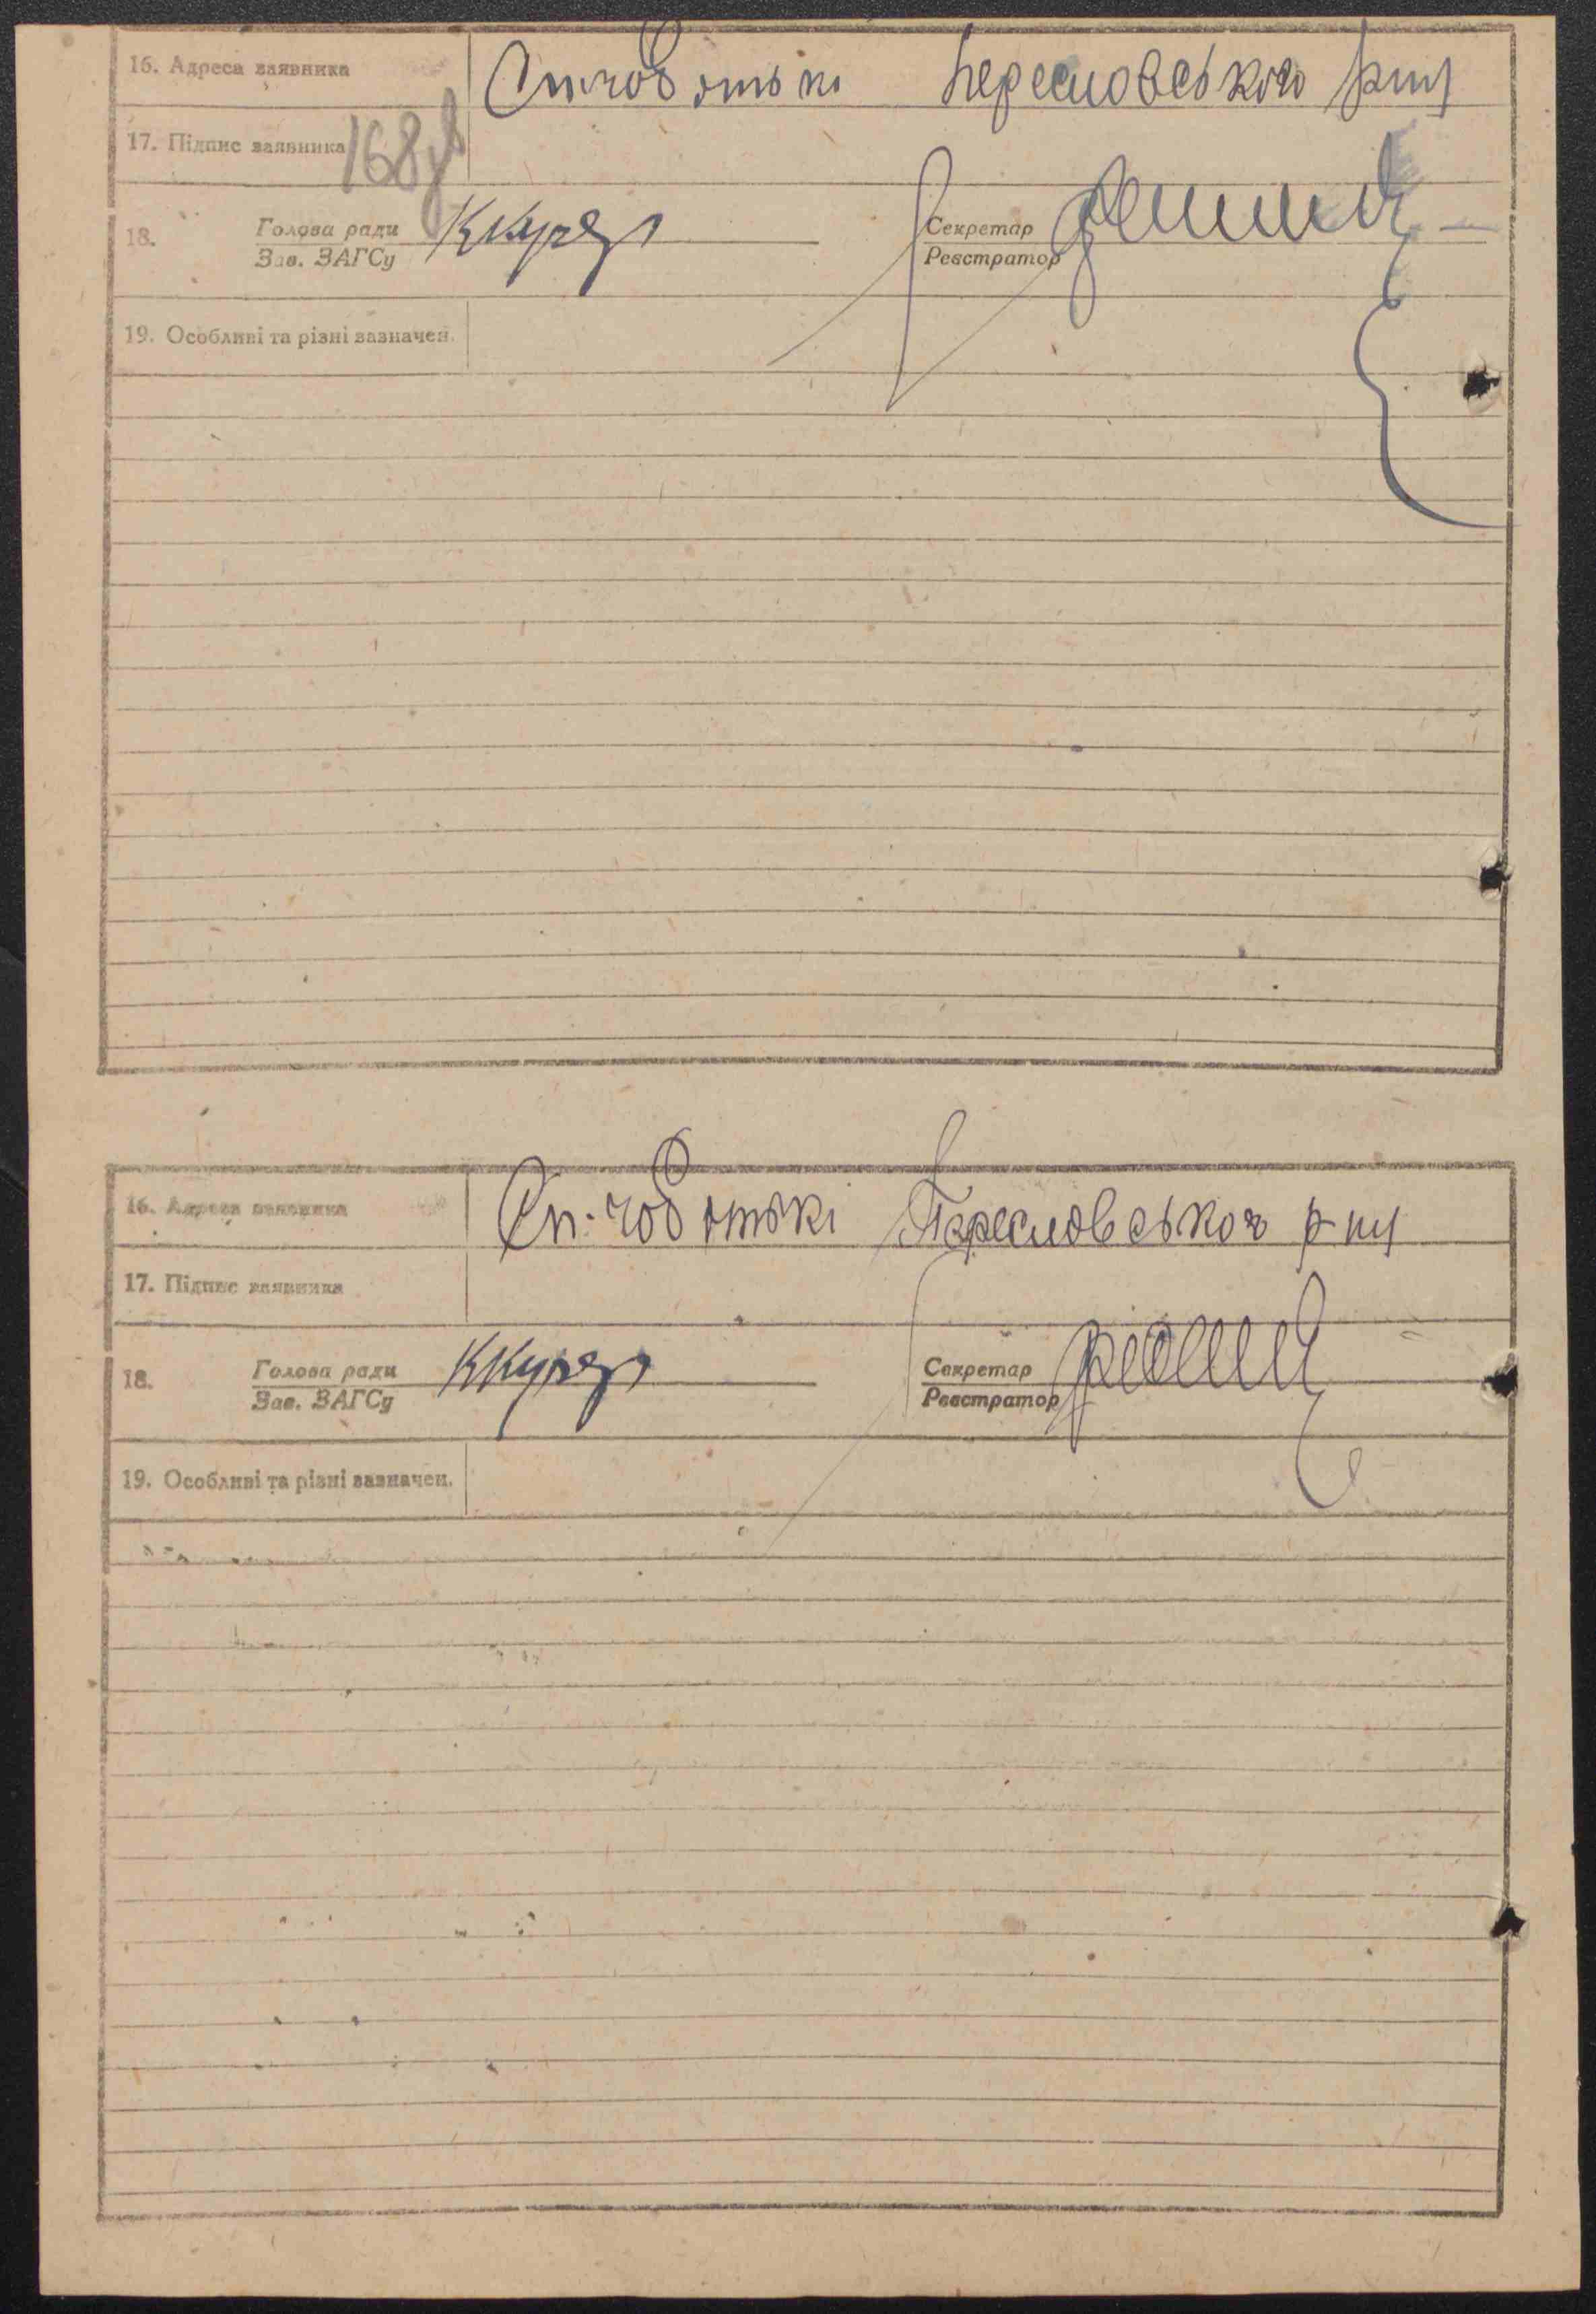 16. Адреса заявника Сп. Чобітькі Пересловського р-ну
17. Підпис заявника 168
18. Голова ради
Зав. ЗАГСу
Секретар
Реєстратор
19. Особливі та різні зазначен.
16. Адреса заявника Сп. Чобітькі Пересловського р-ну
17. Підпис заявника
18. Голова ради
Зав. ЗАГСу
Секретар
Реєстратор
19. Особливі та різні зазначен.